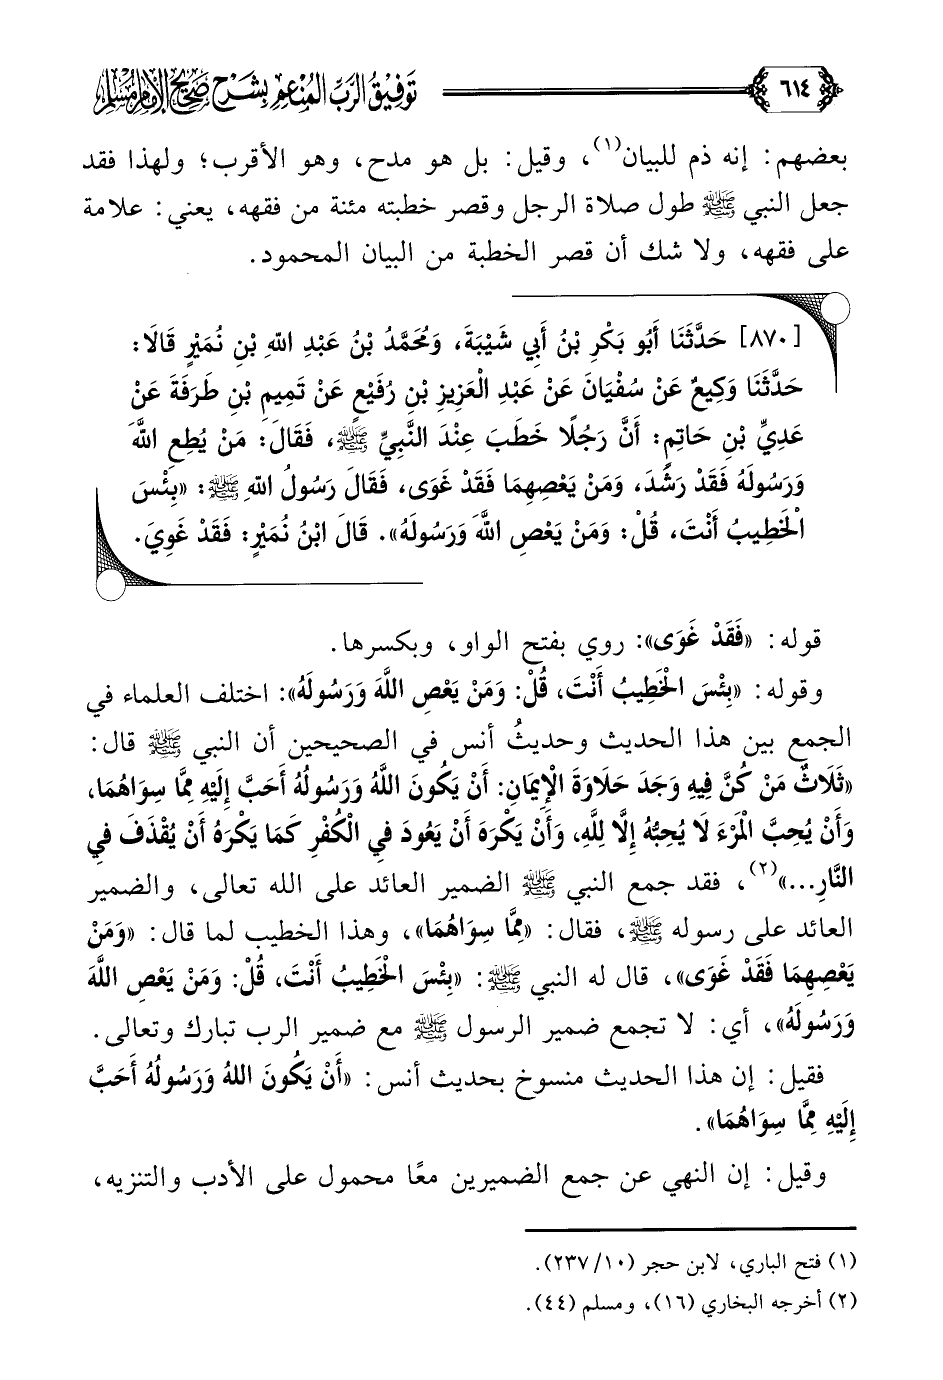 ٦١٤
توفيق الرب المنعم بشرح صحيح الإمام مسلم
بعضهم: إنه ذم للبيان(١)، وقيل: بل هو مدح، وهو الأقرب؛ ولهذا فقد
جعل النبي ﷺ طول صلاة الرجل وقصر خطبته مئنة من فقهه، يعني: علامة
على فقهه، ولا شك أن قصر الخطبة من البيان المحمود.
[٨٧٠] حَدَّثَنَا أَبُو بَكْرِ بْنُ أَبِي شَيْبَةَ، وَمُحَمَّدُ بْنُ عَبْدِ اللهِ بْنِ نُمَيْرٍ قَالَا:
حَدَّثَنَا وَكِيعٌ عَنْ سُفْيَانَ عَنْ عَبْدِ الْعَزِيزِ بْنِ رُفَيْعٍ عَنْ تَمِيمِ بْنِ طَرَفَةَ عَنْ
عَدِيِّ بْنِ حَاتِمٍ: أَنَّ رَجُلًا خَطَبَ عِنْدَ النَّبِيِّ ﷺ، فَقَالَ: مَنْ يُطِعِ اللَّهَ
وَرَسُولَهُ فَقَدْ رَشَدَ، وَمَنْ يَعْصِهِمَا فَقَدْ غَوَى، فَقَالَ رَسُولُ اللهِ ﷺ: «بِئْسَ
الْخَطِيبُ أَنْتَ، قُلْ: وَمَنْ يَعْصِ اللَّهَ وَرَسُولَهُ». قَالَ ابْنُ نُمَيْرٍ: فَقَدْ غَوِيَ.
قوله: «فَقَدْ غَوَى»: روي بفتح الواو، وبكسرها.
وقوله: «بِئْسَ الْخَطِيبُ أَنْتَ، قُلْ: وَمَنْ يَعْصِ اللَّهَ وَرَسُولَهُ»: اختلف العلماء في
الجمع بين هذا الحديث وحديثُ أنس في الصحيحين أن النبي ﷺ قال:
«ثَلَاثٌ مَنْ كُنَّ فِيهِ وَجَدَ حَلَاوَةَ الْإِيمَانِ: أَنْ يَكُونَ اللَّهُ وَرَسُولُهُ أَحَبَّ إِلَيْهِ مِمَّا سِوَاهُمَا،
وَأَنْ يُحِبَّ الْمَرْءَ لَا يُحِبُّهُ إِلَّا لِلَّهِ، وَأَنْ يَكْرَهَ أَنْ يَعُودَ فِي الْكُفْرِ كَمَا يَكْرَهُ أَنْ يُقْذَفَ فِي
النَّارِ...»(٢)، فقد جمع النبي ﷺ الضمير العائد على الله تعالى، والضمير
العائد على رسوله ﷺ، فقال: «مِمَّا سِوَاهُمَا»، وهذا الخطيب لما قال: «وَمَنْ
يَعْصِهِمَا فَقَدْ غَوَى»، قال له النبي ﷺ: «بِئْسَ الْخَطِيبُ أَنْتَ، قُلْ: وَمَنْ يَعْصِ اللَّهَ
وَرَسُولَهُ»، أي: لا تجمع ضمير الرسول ﷺ مع ضمير الرب تبارك وتعالى.
فقيل: إن هذا الحديث منسوخ بحديث أنس: «أَنْ يَكُونَ اللهُ وَرَسُولُهُ أَحَبَّ
إِلَيْهِ مِمَّا سِوَاهُمَا».
وقيل: إن النهي عن جمع الضميرين معًا محمول على الأدب والتنزيه،
(١) فتح الباري، لابن حجر (١٠/ ٢٣٧).
(٢) أخرجه البخاري (١٦)، ومسلم (٤٤).